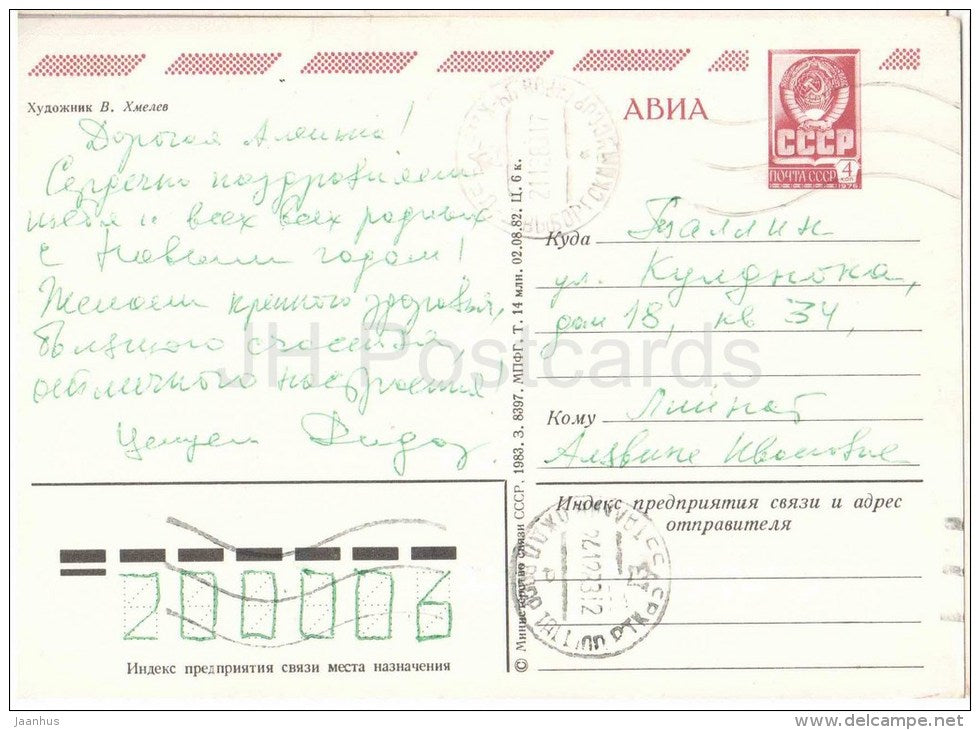 Художник В. Хмелев
АВИА
СССР
ПОЧТА СССР
4
КОП
1976
Дорогая
Сердечно поздравляем
тебя и всех всех родных
с Новым годом!
Желаем крепкого здоровья,
большого счастья,
отличного настроения!
Целуем
Куда Таллин
ул.
дом 18, кв 34,
Кому
Индекс предприятия связи и адрес
отправителя
200006
Индекс предприятия связи места назначения
© Министерство связи СССР. 1983. З. 8397. МПФГ. Т. 14 млн. 02.08.82. Ц. 6 к.
JH Postcards
Jaanhus
www.delcampe.net